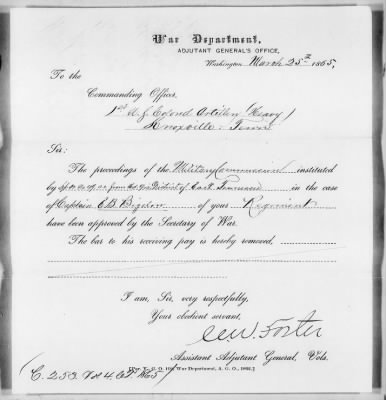 War Department,
ADJUTANT GENERAL'S OFFICE,
Washington March 25th 1865,
To the
Commanding Officer,
1st U.S. Colored Artillery (Heavy)
Knoxville, Tenn
Sir:
The proceedings of the Military Commission instituted
by of District of East Tennessee in the case
of Captain E B Bigelow of your Regiment
have been approved by the Secretary of War.
The bar to his receiving pay is hereby removed,
I am, Sir, very respectfully,
Your obedient servant,
C W. Foster
Assistant Adjutant General, Vols.
(C. 253. 1865)
War Department, A. G. O., 1863.]